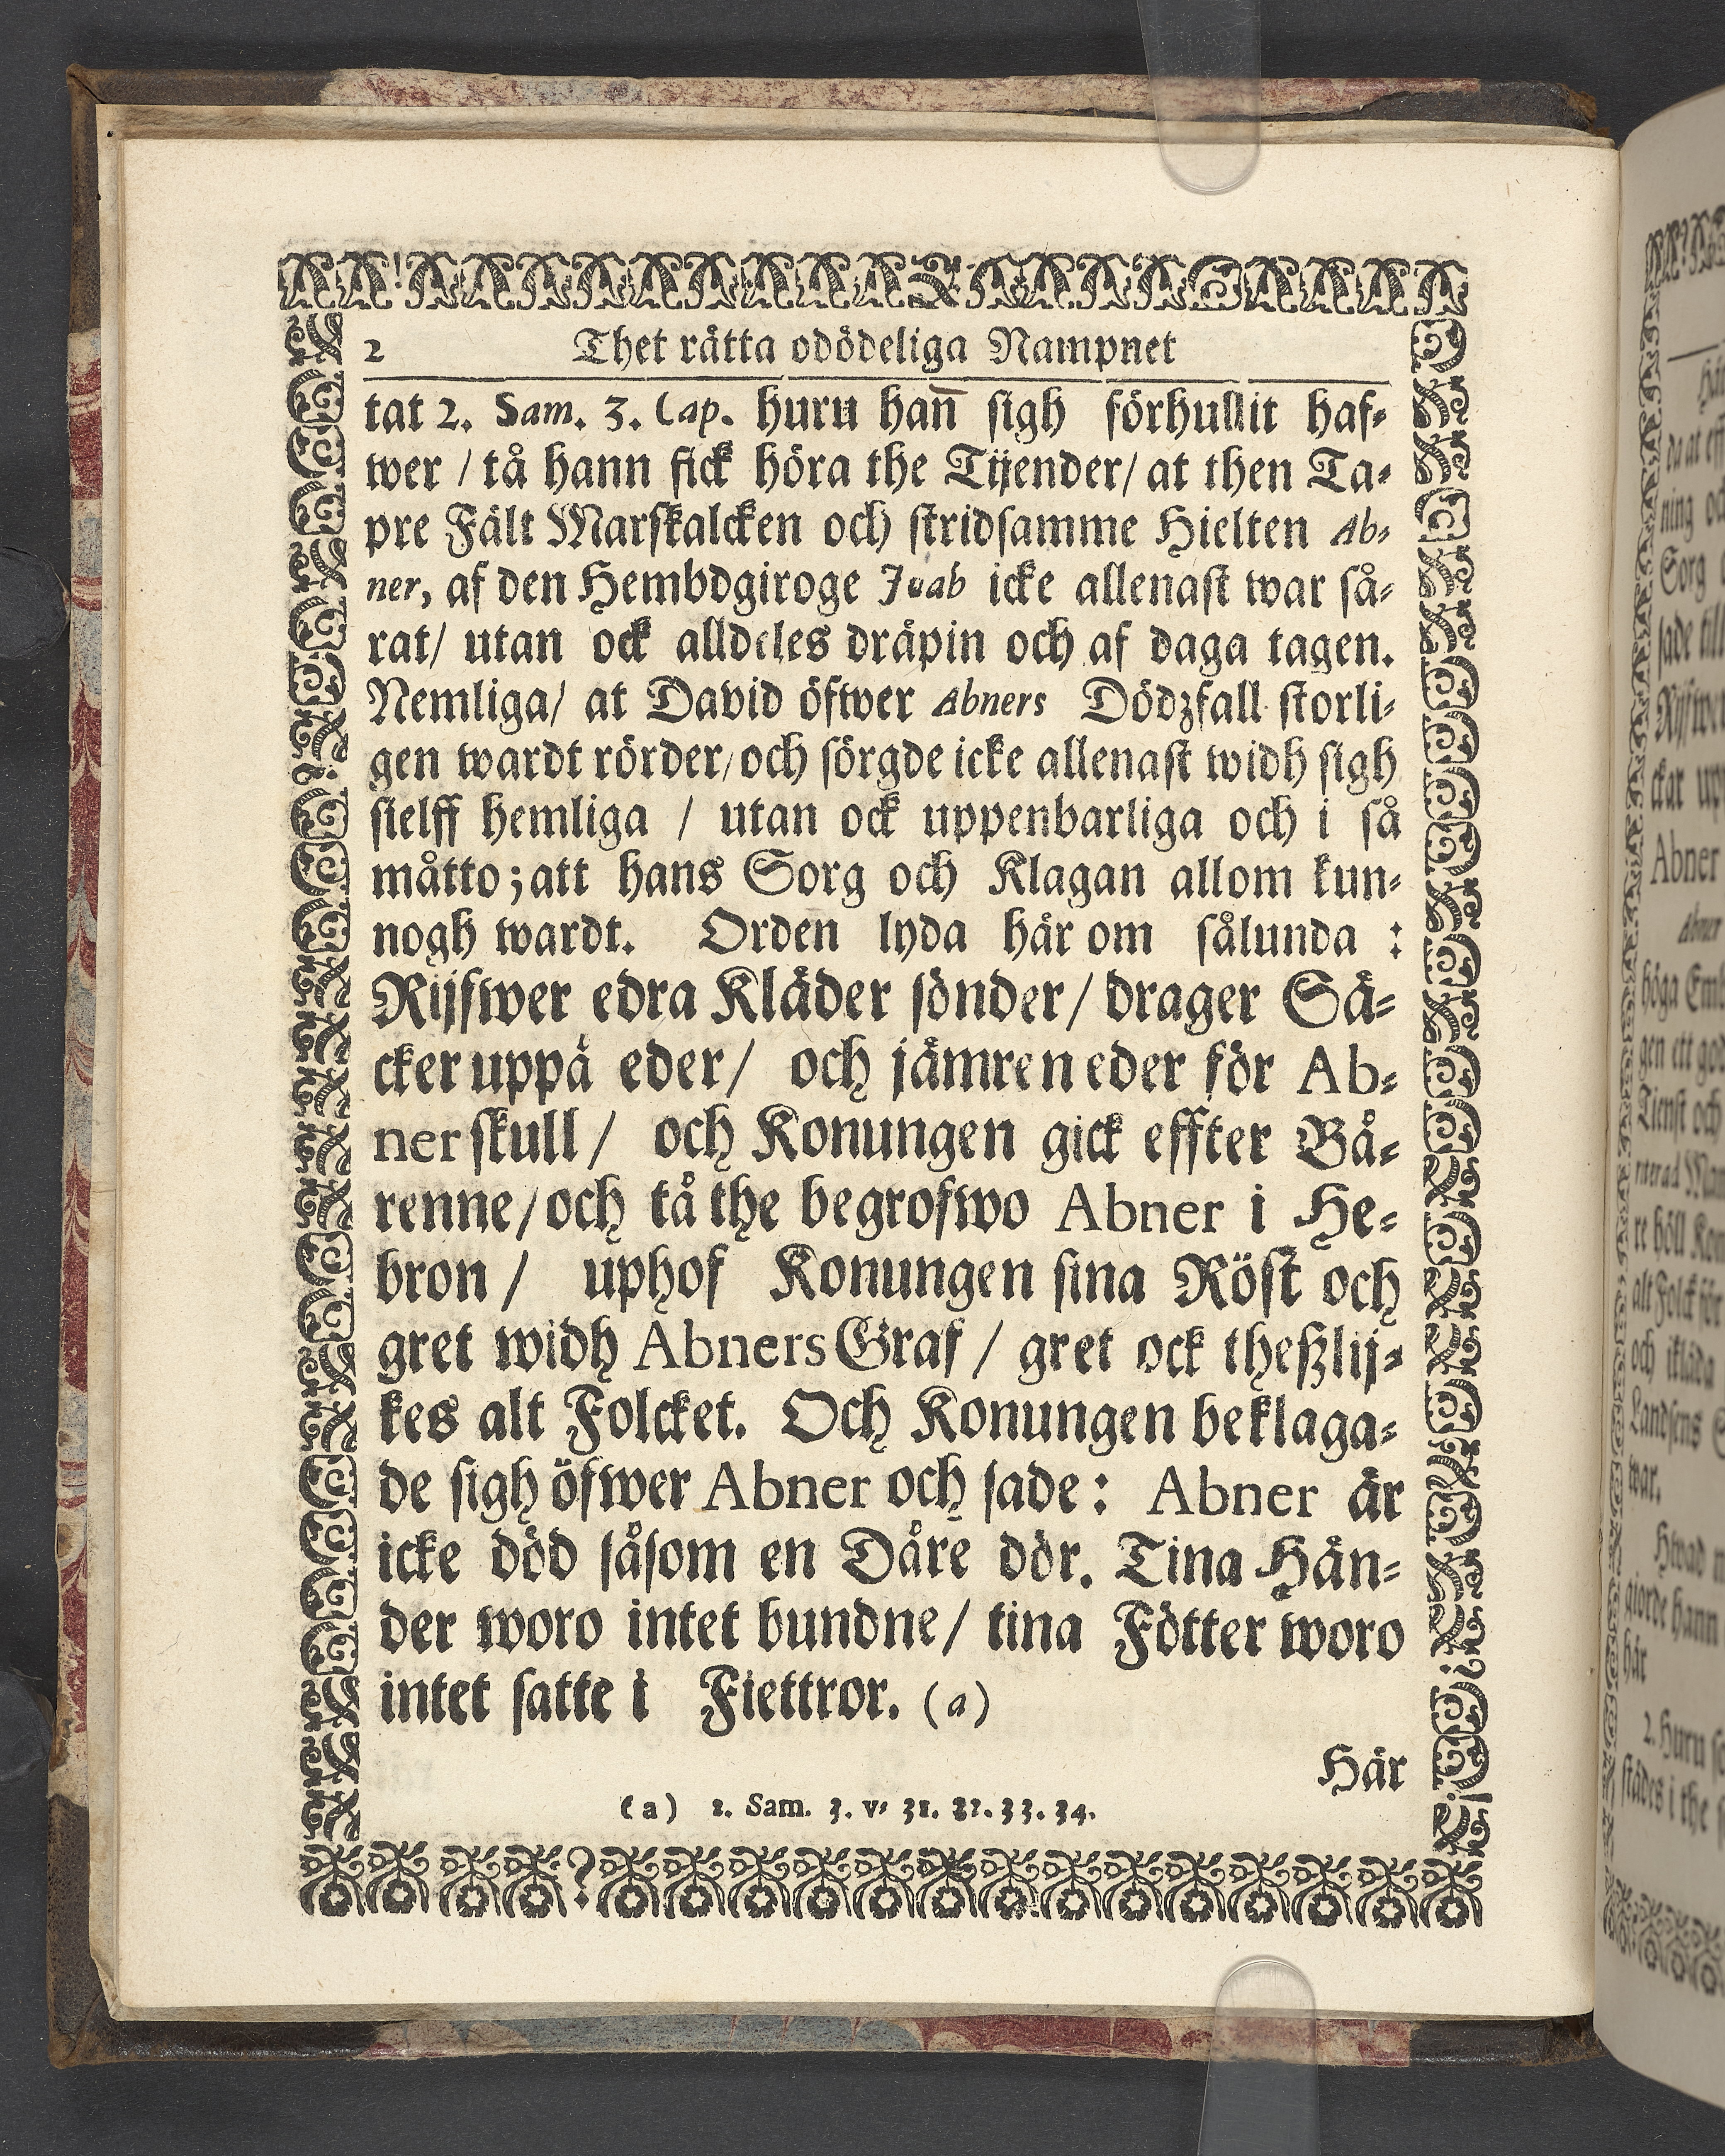 2 Thet rätta odödeliga Nampnet
tat 2. Sam. 3. Cap. huru han̄ sigh förhullit haf-
wer / tå hann fick höra the Tijender / at then Ta-
pre Fält Marskalcken och stridsamme Hielten Ab-
ner, af den Hembdgiroge Joab icke allenast war så-
rat / utan ock alldeles dräpin och af daga tagen.
Nemliga / at David öfwer Abners Dödzfall storli-
gen wardt rörder / och sörgde icke allenast widh sigh
sielff hemliga / utan ock uppenbarliga och i så
måtto; att hans Sorg och Klagan allom kun-
nogh wardt. Orden lyda här om sålunda :
Rijfwer edra Kläder sönder / drager Sä-
cker uppå eder / och jämren eder för Ab-
ner skull / och Konungen gick effter Bå-
renne / och tå the begrofwo Abner i He-
bron / uphof Konungen sina Röst och
gret widh Abners Graf / gret ock theßlij-
kes alt Folcket. Och Konungen beklaga-
de sigh öfwer Abner och sade : Abner är
icke död såsom en Dåre dör. Tina Hän-
der woro intet bundne / tina Fötter woro
intet satte i Fiettror. (a)
Här
(a) 2. Sam. 3. v. 31. 32. 33. 34.